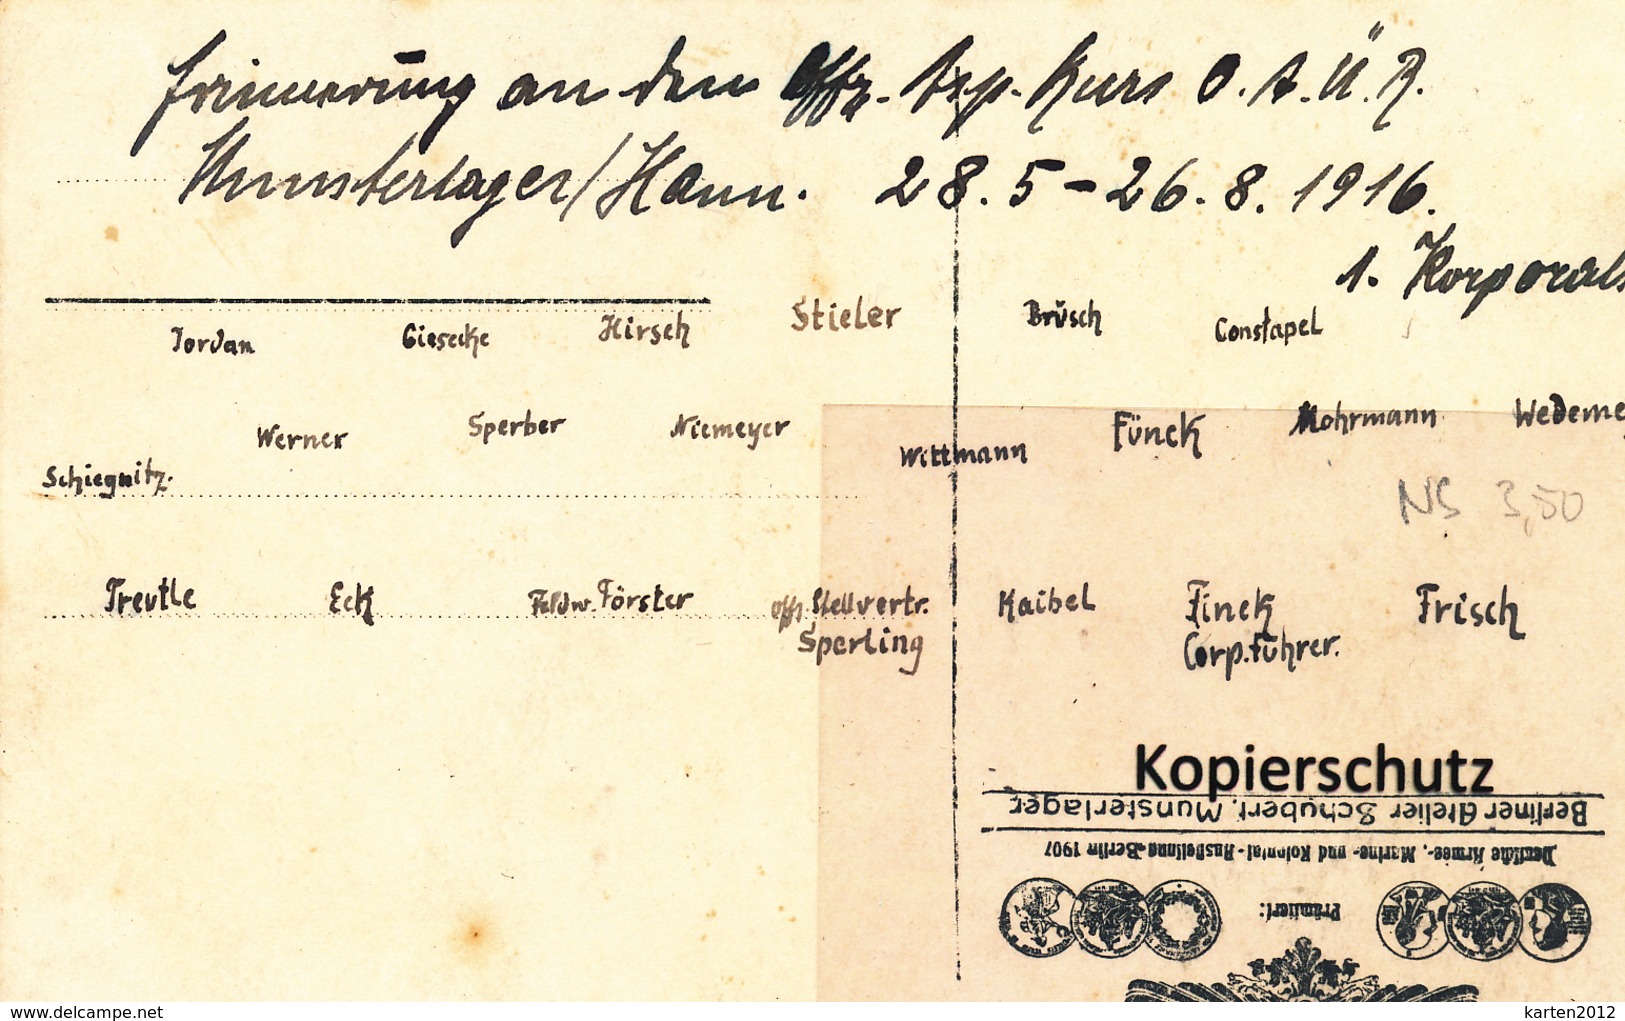 Erinnerung an den Offz. Asp. Kurs O. A. Ü. R.
Munsterlager/Hann. 28.5-26.8.1916.
1. Korporals
Jordan Giesecke Hirsch Stieler Brüsch Constapel
Schiegnitz. Werner Sperber Niemeyer Wittmann Fünck Mohrmann Wedeme
NS 3,50
Treutle Eck Feldw. Förster Offz. Stellvertr. Kaibel Finck Frisch
Sperling Corp.führer.
Kopierschutz
Berliner Atelier Schubert, Munsterlager
Deutsche Armee-, Marine- und Kolonial-Ausstellung Berlin 1907
Prämiiert:
www.delcampe.net
karten2012